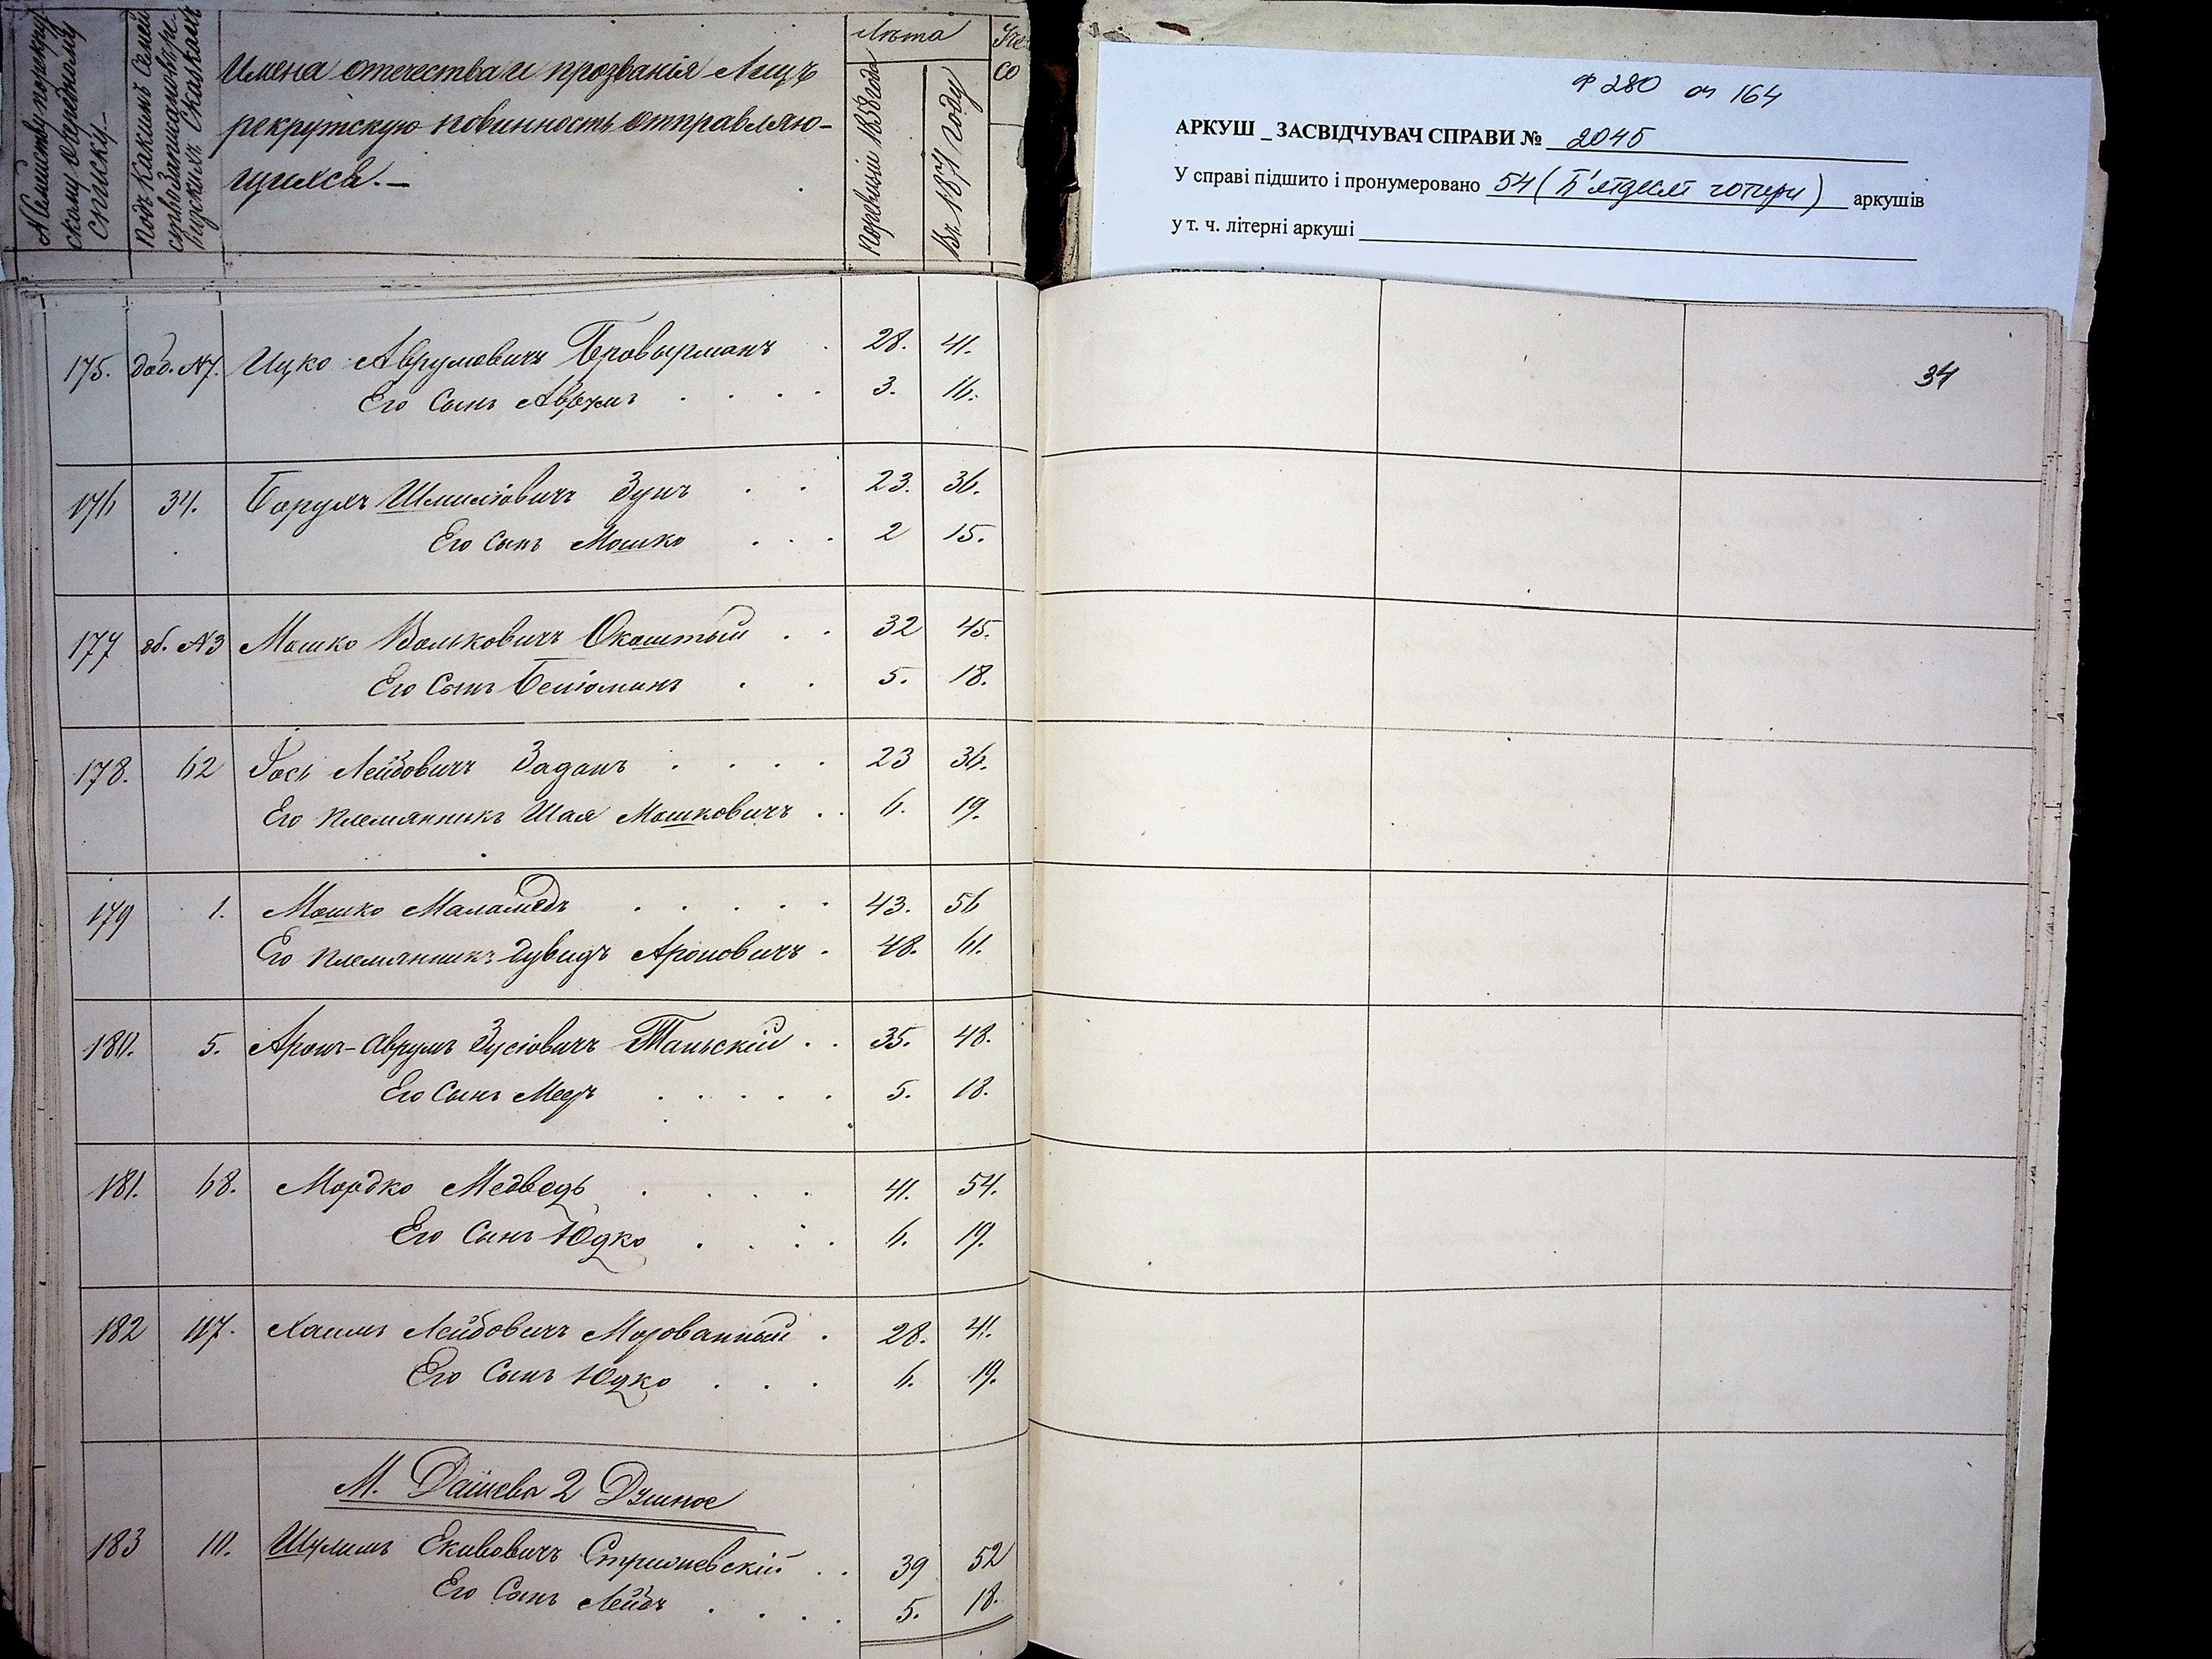 № Семейству по рекрут
скому очередному
списку.—
Подъ какимъ №
Имена отечества и прозванія Лицъ
рекрутскую повинность отправляю-
щихся.—
Лѣта
По ревизіи 1858 года
Въ 1871 году
со
Ф 280 оп 164
АРКУШ _ ЗАСВІДЧУВАЧ СПРАВИ № 2045
У справі підшито і пронумеровано 54 (П'ятдесят чотири) аркушів
у т. ч. літерні аркуші
34
175. доб. №7. Ицко Аврумовичъ Бровырманъ . 28. 41.
Его Сынъ Аврумъ . . . . 3. 16.
176 34. Борухъ Шмилiовичъ Зунъ . . 23. 36.
Его Сынъ Мошко . . . 2 15.
177 об. №3 Мошко Вольковичъ Окоштый . . 32 45.
Его Сынъ Бенiоминъ . . 5. 18.
178. 62 Іось Лейбовичъ Заданъ . . . . 23 36.
Его племянникъ Шая Мошковичъ . . 6. 19.
179 1. Мошко Маламедъ . . . . . 43. 56
Его племянникъ Дувидъ Ароновичъ . 48. 61.
180. 5. Аронъ-Аврумъ Зусіовичъ Таньскій . . 35. 48.
Его Сынъ Мееръ . . . . . 5. 18.
181. 68. Мордко Медведь . . . . 41. 54.
Его Сынъ Юдко . . . . 6. 19.
182 117. Хаимъ Лейбовичъ Морованный . 28. 41.
Его Сынъ Юдко . . . 6. 19.
М. Дашева 2 Душное
183 10. Шулимъ Екивовичъ . . 39 52
Его Сынъ Лейбъ . . . . 5. 18.